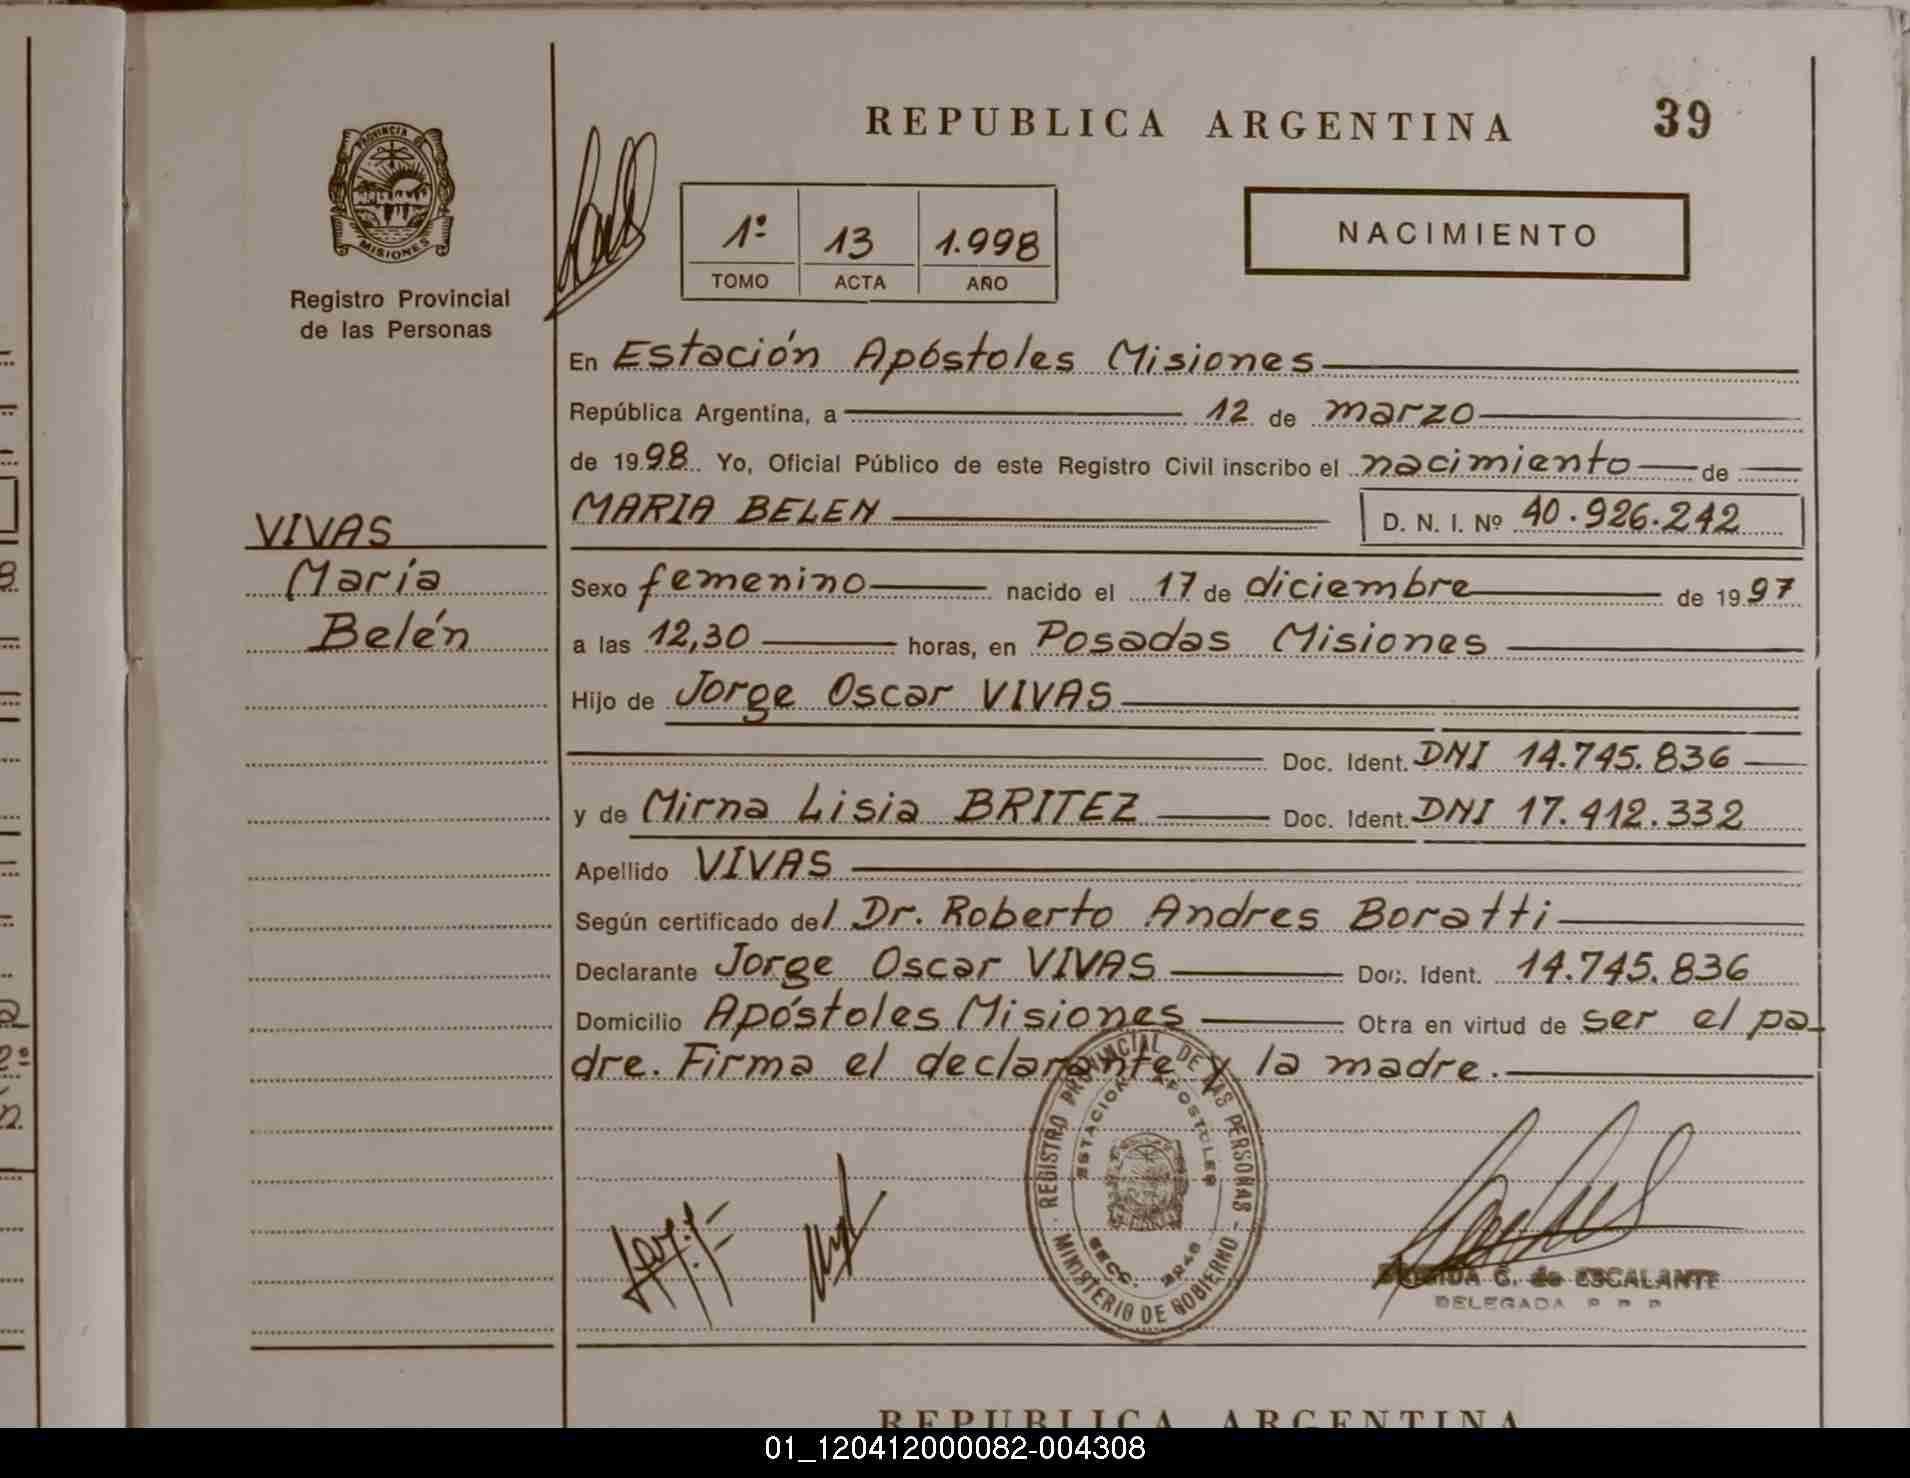 REPUBLICA ARGENTINA 39
PROVINCIA DE
MISIONES
Registro Provincial
de las Personas
1º 13 1.998
TOMO ACTA AÑO
NACIMIENTO
En Estación Apóstoles Misiones
República Argentina, a 12 de marzo
de 1998 Yo, Oficial Público de este Registro Civil inscribo el nacimiento de
MARIA BELEN D. N. I. Nº 40.926.242
VIVAS
María
Belén
Sexo femenino nacido el 17 de diciembre de 1997
a las 12,30 horas, en Posadas Misiones
Hijo de Jorge Oscar VIVAS
Doc. Ident. DNI 14.745.836
y de Mirna Lisia BRITEZ Doc. Ident. DNI 17.412.332
Apellido VIVAS
Según certificado del Dr. Roberto Andres Boratti
Declarante Jorge Oscar VIVAS Doc. Ident. 14.745.836
Domicilio Apóstoles Misiones Otra en virtud de ser el pa-
dre. Firma el declarante y la madre.
REGISTRO PROVINCIAL DE LAS PERSONAS - MINISTERIO DE GOBIERNO -
ESTACION APOSTOLES
SECC.
G. de ESCALANTE
DELEGADA
REPUBLICA ARGENTINA
01_120412000082-004308